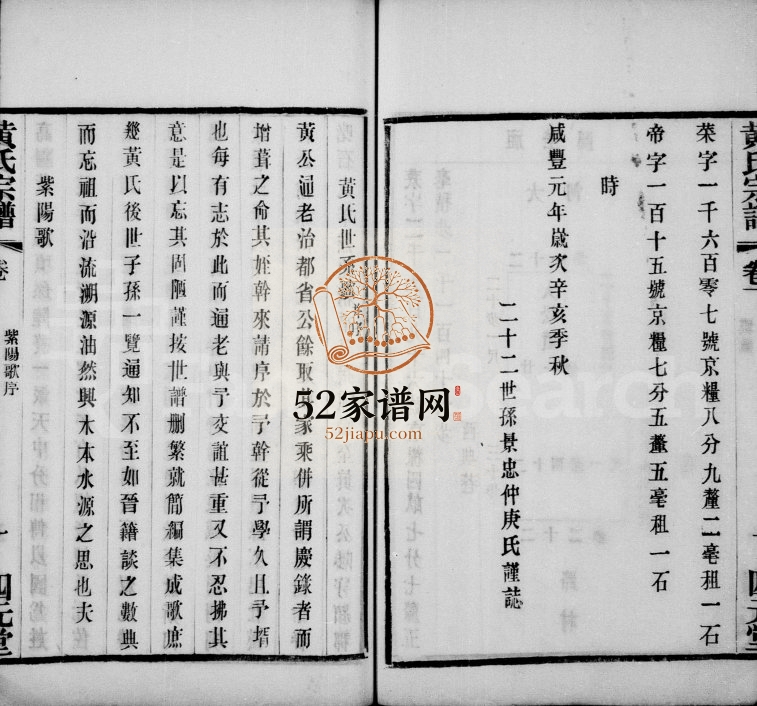 黃氏宗譜
卷一
四元堂
菜字一千六百零七號京糧八分九釐二毫租一石
帝字一百十五號京糧七分五釐五毫租一石
時
咸豐元年歲次辛亥季秋
二十二世孫景忠仲庚氏謹誌
黃氏世系
黃公通老治都省公餘取家乘併所謂慶錄者而
增葺之命其姪幹來請序於予幹從予學久且予壻
也每有志於此而通老與予交誼甚重又不忍拂其
意是以忘其固陋謹按世譜刪繁就簡編集成歌庶
幾黃氏後世子孫一覽通知不至如晉籍談之數典
而忘祖而沿流溯源油然興木本水源之思也夫
紫陽歌
黃氏宗譜
卷
紫陽歌序
一
四元堂
52家谱网
52jiapu.com